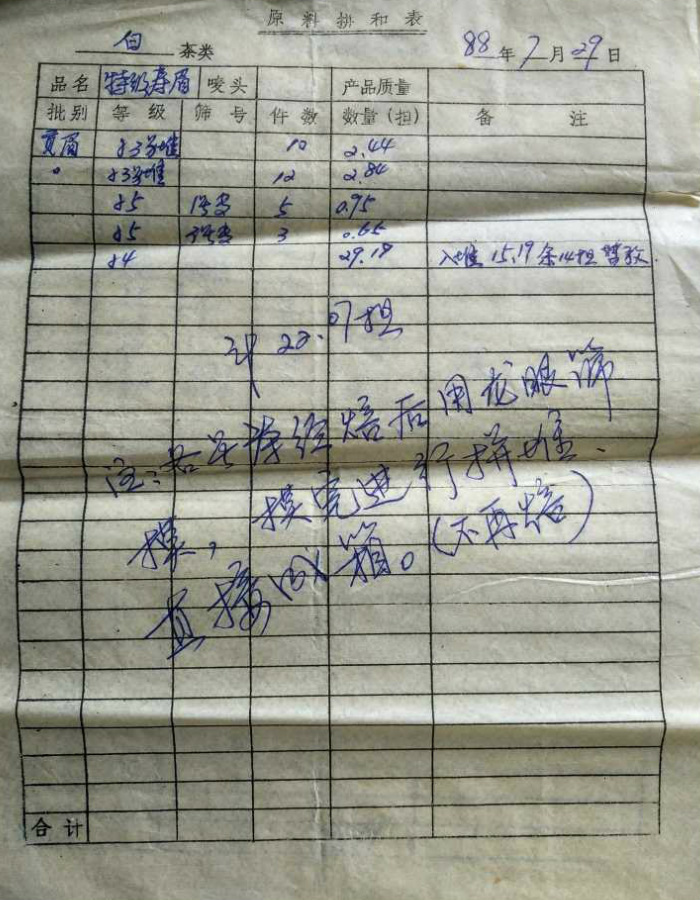 原料拼和表
白 茶类 88年7月29日
品名 特级寿眉 唛头 产品质量
批别 等级 筛号 件数 数量(担) 备注
贡眉 83 堆 10 2.44
〃 83 堆 12 2.84
85 1号 5 0.95
85 号 3 0.66
84 29.19 入堆 15.19 余14担
计 22.07担
注:各 经焙后用龙眼筛
拣, 拣完进行拼堆.
直接 箱。(不再焙)
合计